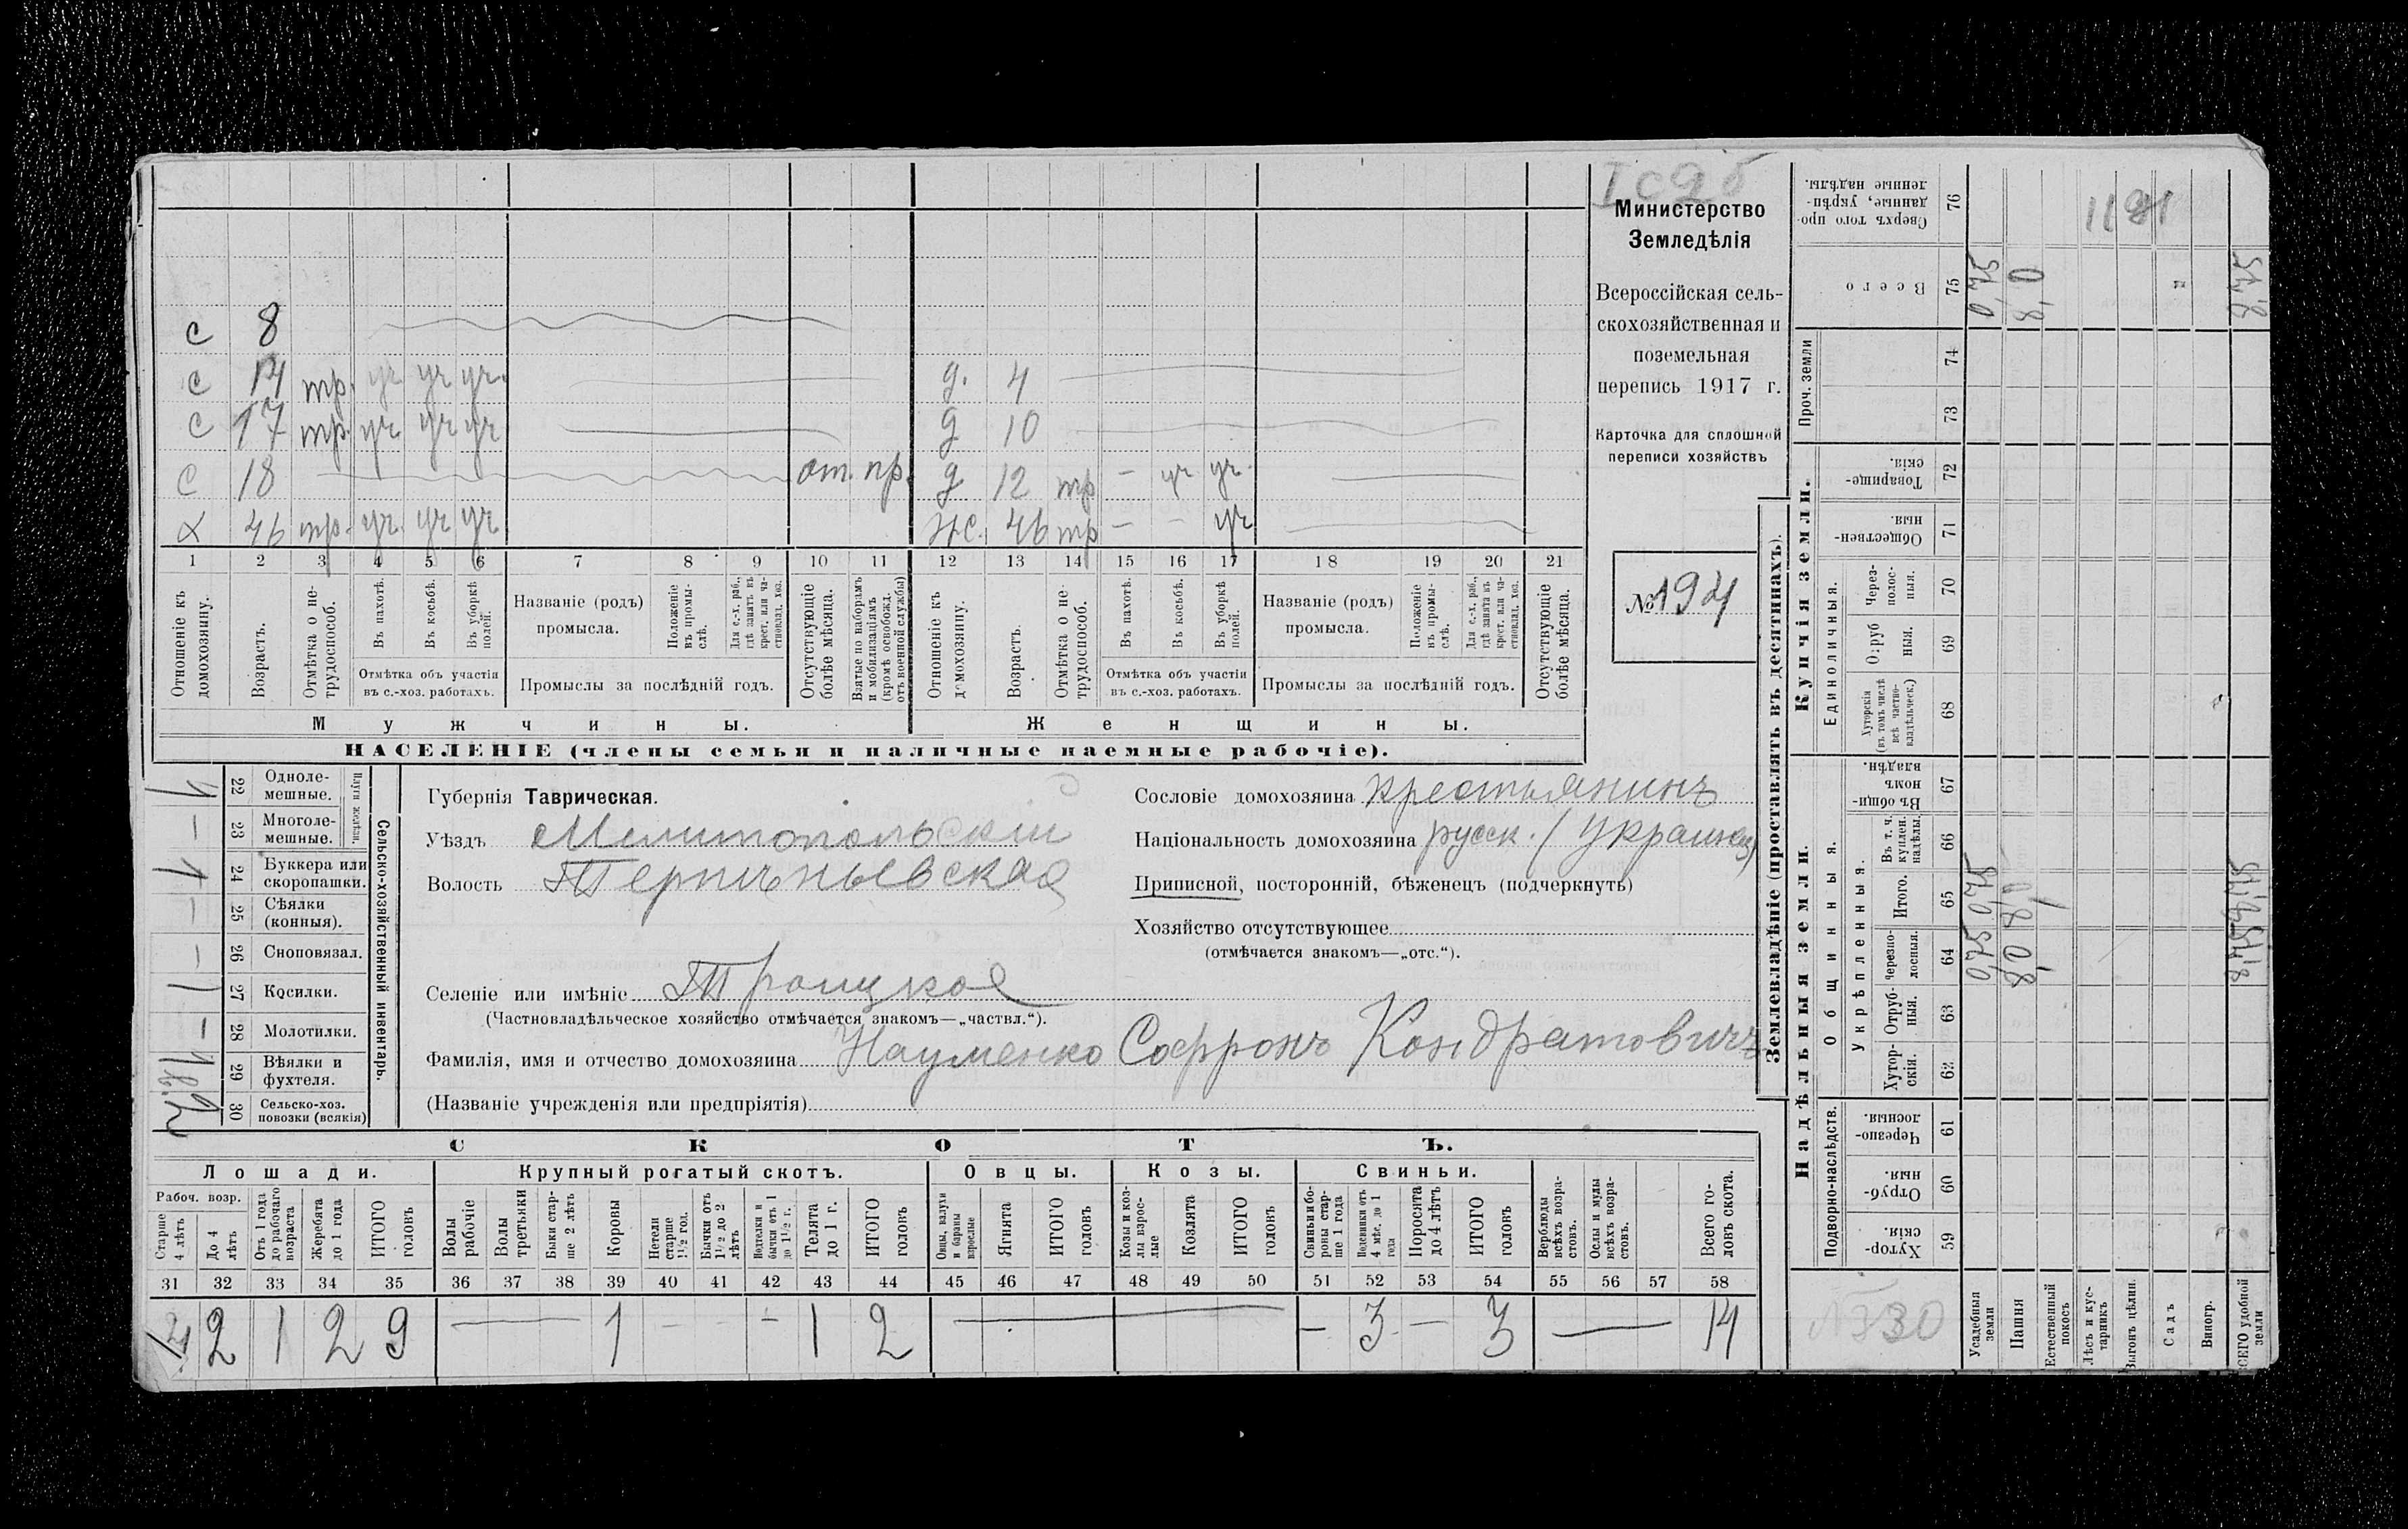 Министерство
Земледѣлія
Всероссійская сель-
скохозяйственная и
поземельная
перепись 1917 г.
Карточка для сплошной
переписи хозяйствъ
№ 194
с 8
с 14 тр. уч уч уч.
с 17 тр. уч уч уч
с 18 от. пр.
х 46 тр. уч. уч уч
д. 4
д 10
д 12 тр — уч уч.
ж. 46 тр — — уч
1 2 3 4 5 6 7 8 9 10 11 12 13 14 15 16 17 18 19 20 21
Отношеніе къ домохозяину.
Возрастъ.
Отмѣтка о не-трудоспособ.
Въ пахотѣ.
Въ косьбѣ.
Въ уборкѣ полей.
Отмѣтка объ участіи
въ с.-хоз. работахъ.
Названіе (родъ)
промысла.
Положеніе въ промы-слѣ.
Для с.-х. раб., гдѣ занятъ въ крест. или ча-стновлад. хоз.
Промыслы за послѣдній годъ.
Отсутствующіе болѣе мѣсяца.
Взятые по наборамъ и мобилизаціямъ (кромѣ освобожд. отъ военной службы)
Отношеніе къ домохозяину.
Возрастъ.
Отмѣтка о не-трудоспособ.
Въ пахотѣ.
Въ косьбѣ.
Въ уборкѣ полей.
Отмѣтка объ участіи
въ с.-хоз. работахъ.
Названіе (родъ)
промысла.
Положеніе въ промы-слѣ.
Для с.-х. раб., гдѣ занята въ крест. или ча-стновлад. хоз.
Промыслы за послѣдній годъ.
Отсутствующіе болѣе мѣсяца.
Мужчины. Женщины.
НАСЕЛЕНІЕ (члены семьи и наличные наемные рабочіе).
Сельско-хозяйственный инвентарь.
22 Одноле-мешные. 1
23 Многоле-мешные. —
24 Буккера или скоропашки. 1
25 Сѣялки (конныя). —
26 Сноповязал. —
27 Косилки. 1
28 Молотилки. —
29 Вѣялки и фухтеля.
30 Сельско-хоз. повозки (всякія) 2
Губернія Таврическая.
Уѣздъ Мелитопольскій
Волость Терпѣньевская
Селеніе или имѣніе Троицкое
(Частновладѣльческое хозяйство отмѣчается знакомъ—„частвл.“).
Фамилія, имя и отчество домохозяина Науменко Софронъ Кондратовичъ
(Названіе учрежденія или предпріятія)
Сословіе домохозяина крестьянинъ
Національность домохозяина русск. (украинец)
Приписной, посторонній, бѣженецъ (подчеркнуть)
Хозяйство отсутствующее
(отмѣчается знакомъ—„отс.“).
СКОТЪ.
Лошади. Крупный рогатый скотъ. Овцы. Козы. Свиньи.
Рабоч. возр.
Старше 4 лѣтъ
До 4 лѣтъ
Отъ 1 года до рабочаго возраста
Жеребята до 1 года
ИТОГО головъ
Волы рабочіе
Волы третьяки
Быки стар-ше 2 лѣтъ
Коровы
Нетели старше 1½ год.
Бычки отъ 1½ до 2 лѣтъ
Подтелки и бычки отъ 1 до 1½ г.
Телята до 1 г.
ИТОГО головъ
Овцы, валухи и бараны взрослые
Ягнята
ИТОГО головъ
Козы и коз-лы взрос-лые
Козлята
ИТОГО головъ
Свиньи и бо-ровы стар-ше 1 года
Подсвинки отъ 4 мѣс. до 1 года
Поросята до 4 лѣтъ
ИТОГО головъ
Верблюды всѣхъ возра-стовъ.
Ослы и мулы всѣхъ возра-стовъ.
Всего го-ловъ скота.
31 32 33 34 35 36 37 38 39 40 41 42 43 44 45 46 47 48 49 50 51 52 53 54 55 56 57 58
4 2 1 2 9 — 1 — — — 1 2 — — 3 — 3 — 14
Землевладѣніе (проставлять въ десятинахъ).
Надѣльныя земли. Купчія земли.
Подворно-наслѣдств.
Общинныя.
Укрѣпленныя.
Единоличныя.
Проч. земли
59 Хутор-скія.
60 Отруб-ныя.
61 Черезпо-лосныя.
62 Хутор-скія.
63 Отруб-ныя.
64 Черезпо-лосныя.
65 Итого.
66 Въ т. ч. куплен. надѣлы.
67 Въ общи-номъ владѣн.
68 Хуторскія (въ томъ числѣ всѣ частно-владѣльческ.)
69 Отруб ныя.
70 Через-полос-ныя.
71 Обществен-ныя.
72 Товарище-скія.
73
74
75 Всего
76 Сверхъ того про-данные, укрѣп-ленные надѣлы.
Усадебныя земли
Пашня 8,0
Естественный покосъ
Лѣсъ и кус-тарникъ
Выгонъ цѣлин.
Садъ
Виногр.
ВСЕГО удобной земли